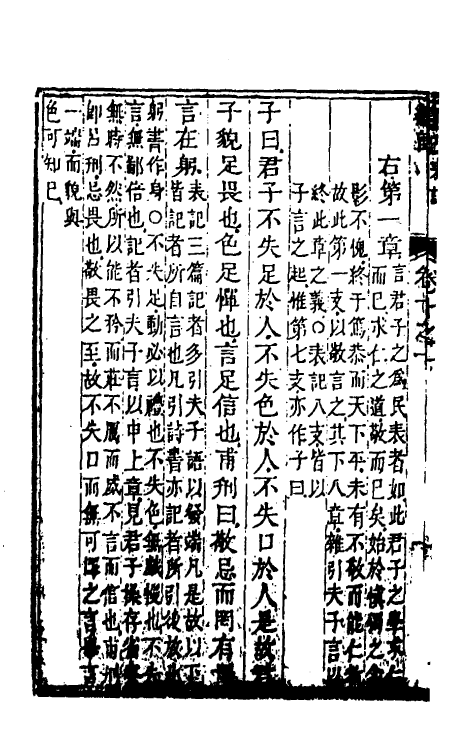 右第一章言君子之爲民表者如此君子之學求仁
而已求仁之道敬而已矣始於愼獨之
影不愧終于篤恭而天下平未有不敬而能仁
故此第一支以敬言之其下八章雜引夫子言以
終此章之義○表記八支皆以
子言之起惟第七支亦作子曰
子曰君子不失足於人不失色於人不失口於人是故君
子貌足畏也色足憚也言足信也甫刑曰敬忌而罔有
言在躬表記三篇記者多引夫子語以發端凡是故以下
皆記者所自言也凡引詩書亦記者所引後放此
躬書作身○不失足動必以禮也不失色無戲慢也不失
言無鄙倍也記者引夫子言以申上章見君子操存
無時不然所以能不矜而莊不厲而威不言而信也甫刑
卽呂刑忌畏也敬畏之至故不失口而無可擇之言
一端而貌與
色可知已